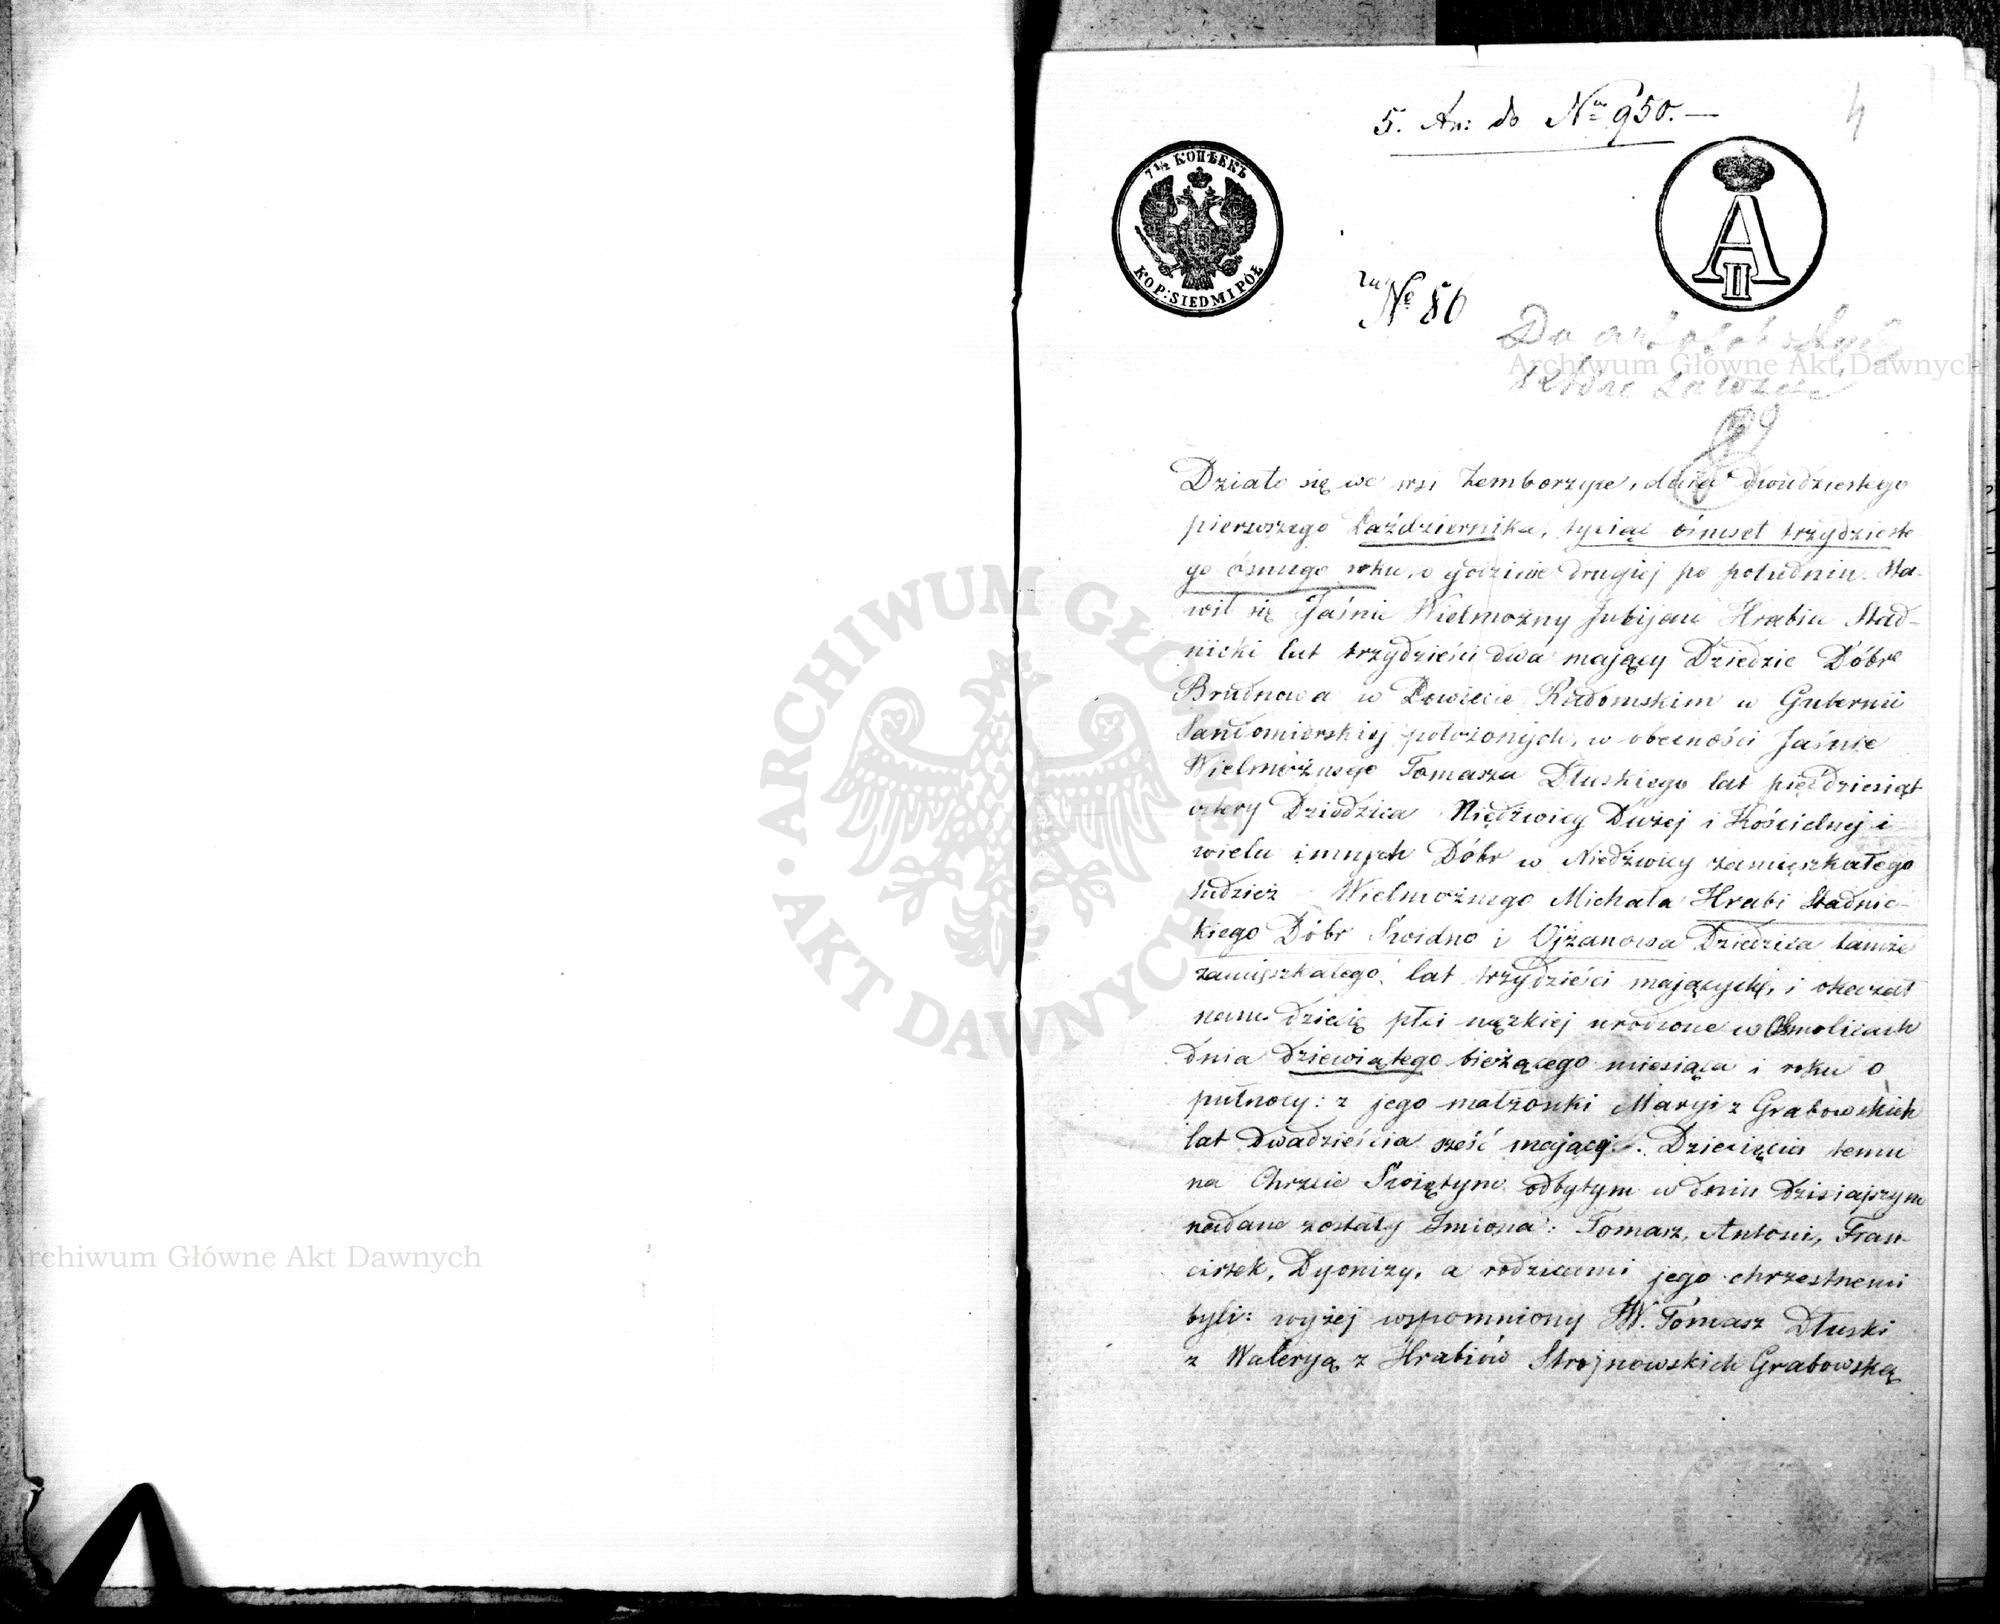 5. An: do Nru 950. —
4
7½ КОПѢЕКЪ
KOP: SIEDM I PÓŁ
A II
No 86
Do
które
Działo się we wsi Zemborzyce, dnia dwudziestego
pierwszego Października, tysiąc ośmset trzydzieste
go ósmego roku, o godzinie drugiej po południu. Sta-
wił się Jaśnie Wielmożny Fabijan Hrabia Stad-
nicki lat trzydzieści dwa mający Dziedzic Dóbr
Brudnowa w Powiecie Radomskim w Gubernii
Sandomierskiej położonych, w obecności Jaśnie
Wielmożnego Tomasza Dłuskiego lat pięćdziesiąt
cztery Dziedzica Niedźwicy Dużej i Kościelnej i
wielu innych Dóbr w Niedźwicy zamięszkałego
tudzież Wielmożnego Michała Hrabi Stadnic-
kiego Dóbr Świdno i Ojżanowa Dziedzica tamże
zamięszkałego, lat trzydzieści mających, i okazał
nam dziecię płci męzkiej urodzone w Osmolicach
dnia dziewiątego bieżącego miesiąca i roku o
pułnocy: z jego małżonki Maryi z Grabowskich
lat dwadzieścia sześć mającej. Dziecięciu temu
na Chrzcie Świętym odbytym w dniu dzisiajszym
nadane zostały Imiona: Tomasz, Antoni, Fran-
ciszek, Dyonizy, a rodzicami jego chrzestnemi
byli: wyżej wspomniony JW. Tomasz Dłuski
z Waleryą z Hrabiów Strojnowskich Grabowską
Archiwum Główne Akt Dawnych
Archiwum Główne Akt Dawnych
ARCHIWUM GŁÓWNE AKT DAWNYCH